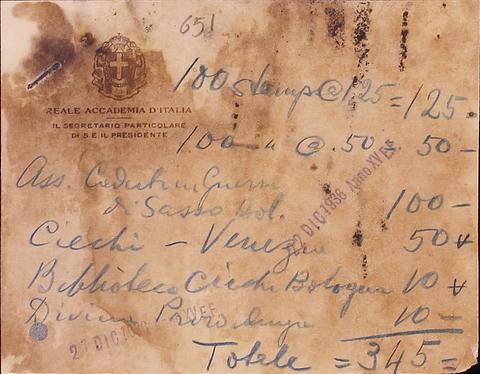 651
REALE ACCADEMIA D'ITALIA
IL SEGRETARIO PARTICOLARE
DI S.E. IL PRESIDENTE
100 stamps @ 1.25 = 125
100 — " @ .50 50 —
Ass. Caduti in Guerra
di Sasso Bol. 100 —
Ciechi — Venezia 50
Biblioteca Ciechi Bologna 10
Divina Provvidenza 10 —
Totale = 345 =
DIC 1938 Anno XVEF
27 DIC XVEF